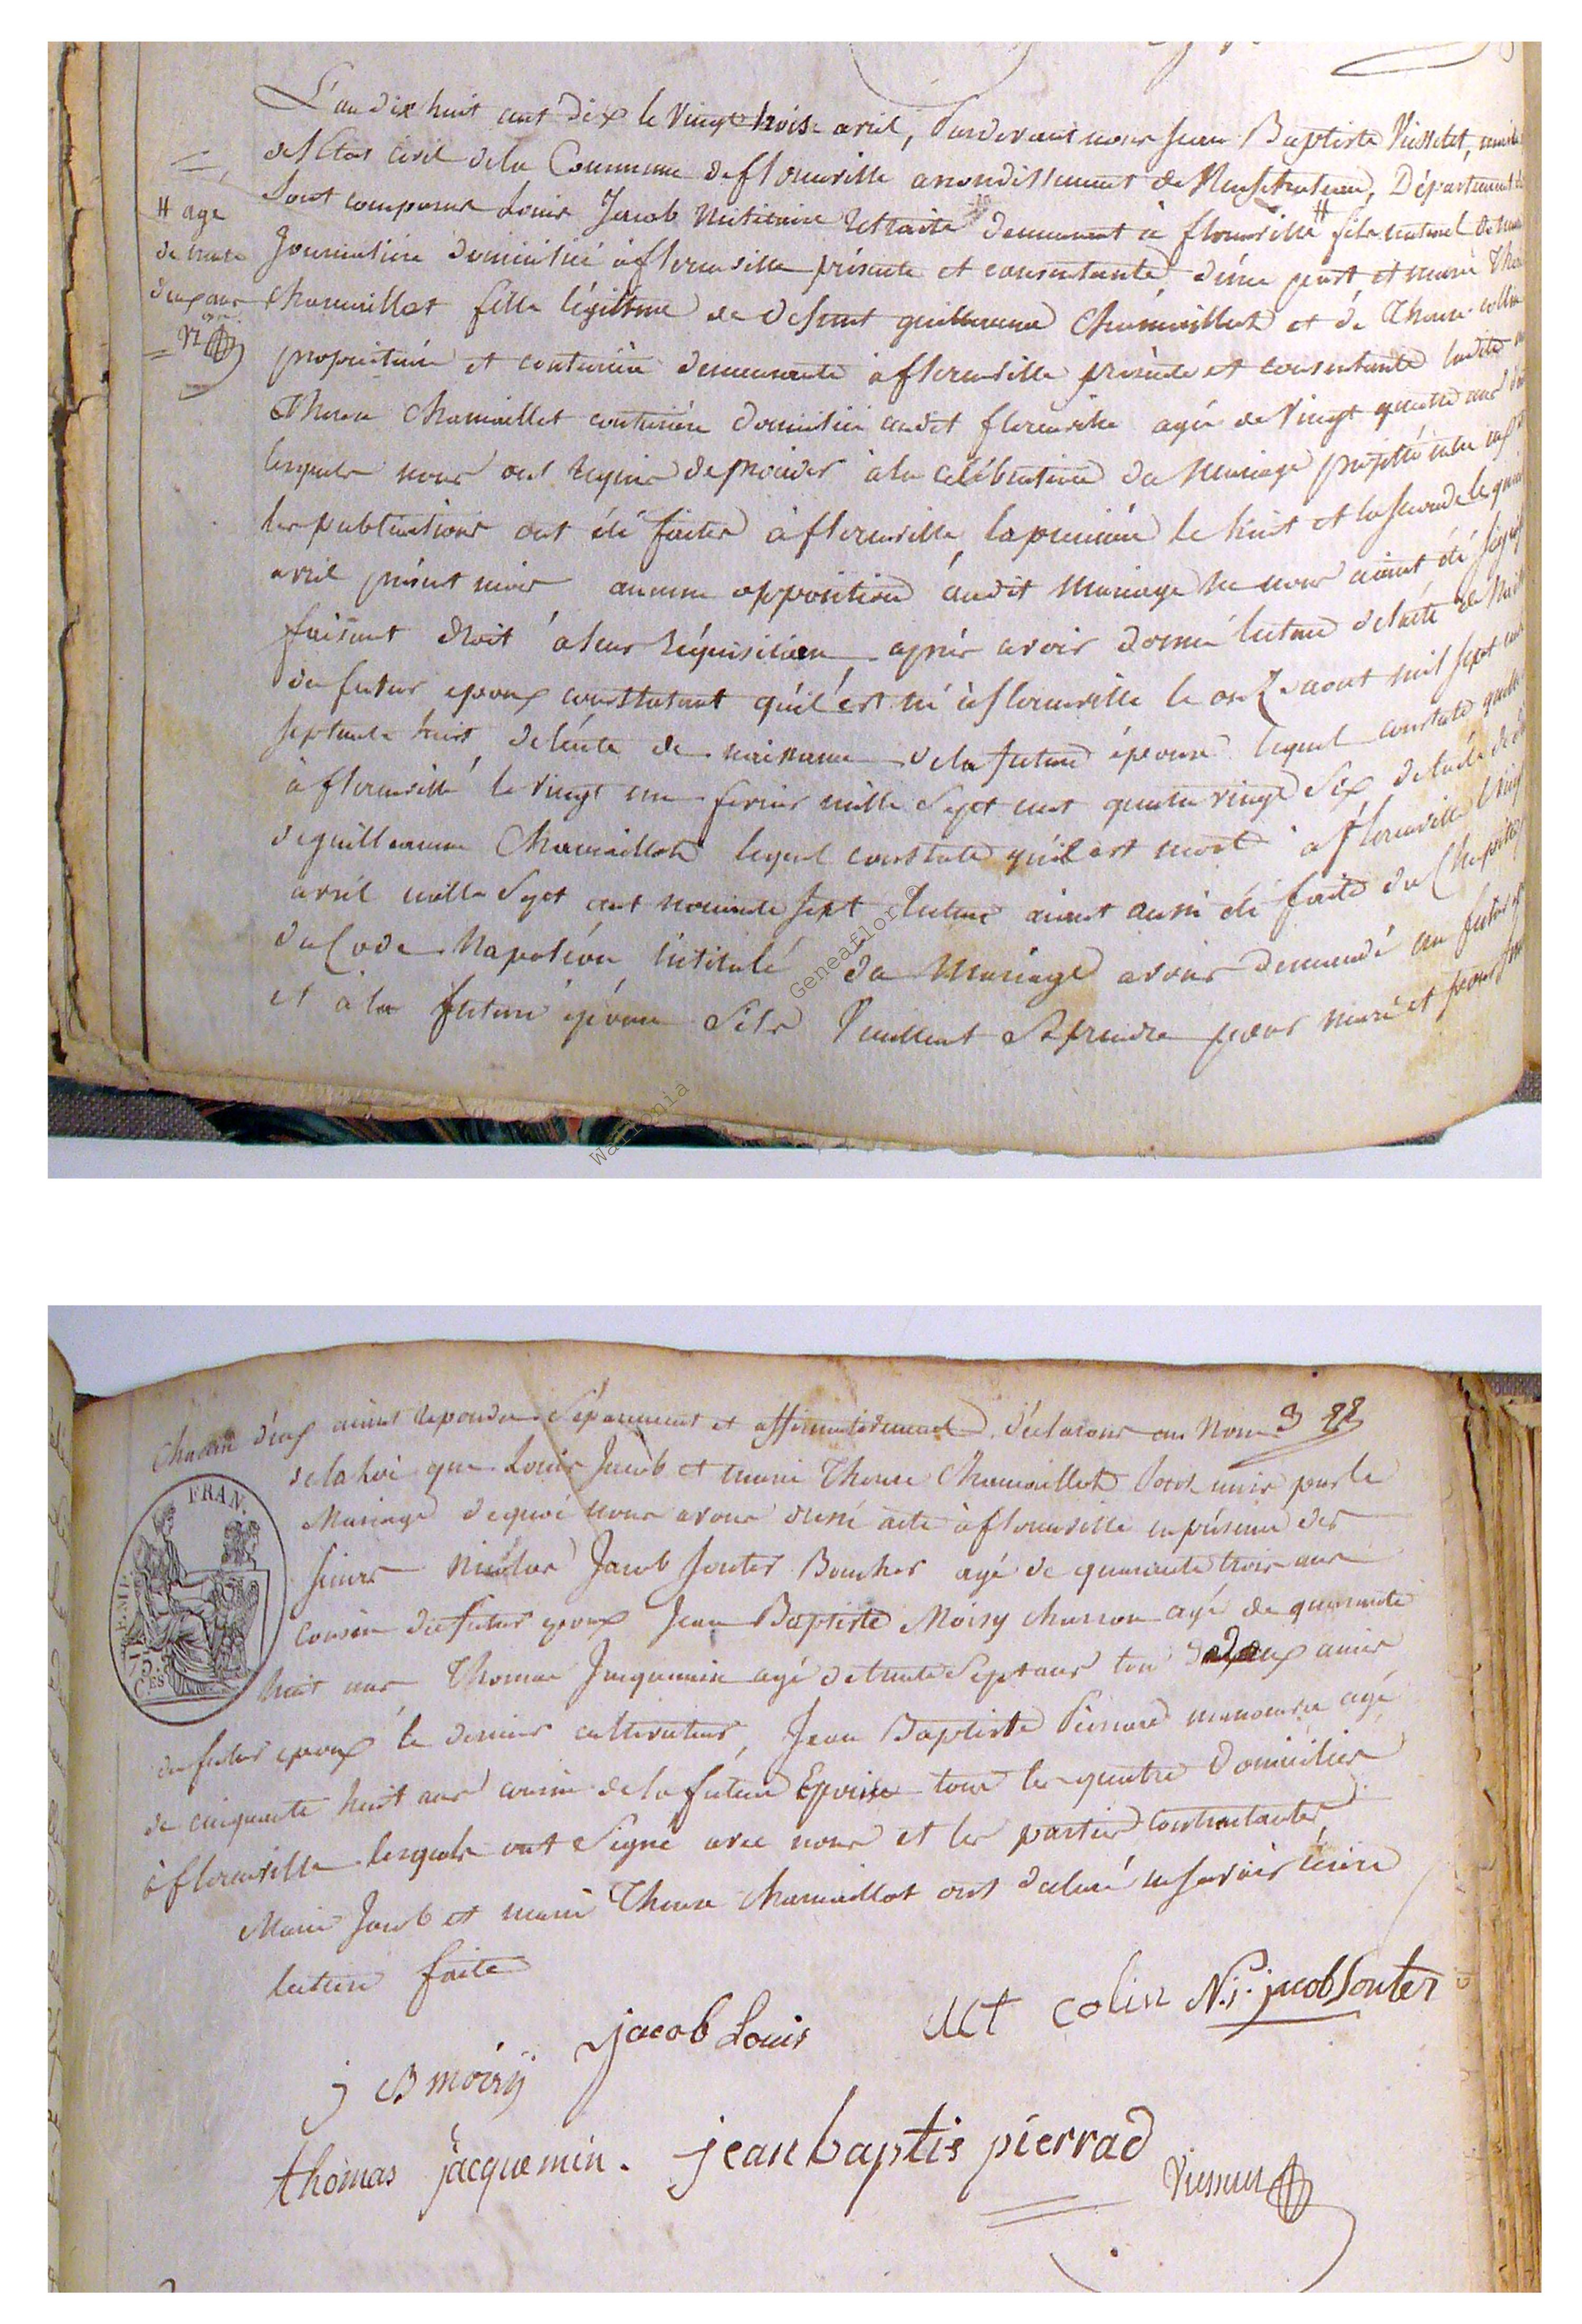 L'an dix huit cent dix le vingt trois avril, Pardevant nous Jean Baptiste Viesselet,
de l'Etat civil de la Commune de florenville arrondissement de Neufchateau, Département
Sont comparus Louis Jacob Militaire retraité demeurant à florenville # fils naturel de
Journaliere domiciliée à florenville présente et consentante d'une part, et marie
Chamaillot fille légitime de defunt guillaume Chamaillot et de Therese
propriétaire et couturiere demeurante à florenville présente et consentante ladite
Therese Chamaillot couturière domiciliée audit florenville agée de vingt quatre ans
lesquels nous ont requis de procéder à la célébration du Mariage projetté entre
les publications ont été faites à florenville, la première le huit et la seconde le
avril présent mois aucune opposition audit Mariage ne nous aiant été
faisant droit à leur réquisition après avoir donné lecture de l'acte de
du futur epoux constatant qu'il est né à florenville le onze aout mil sept cent
septante huit de l'acte de naissance de la future épouse lequel constate
à florenville le vingt un fevrier mille Sept cent quatre vingt Six de l'acte de
de guillaume Chamaillot lequel constate qu'il est mort à florenville le
avril mille Sept cent nonante sept lecture aiant aussi été faite du Chapitre
du Code Napoléon intitulé du Mariage avons demandé au futur
et à la future épouse S'ils Veuillent Se prendre pour mari et pour
# agé
de trente
deux ans
Chacun d'eux aiant repondu Séparément et affirmativement, déclarons au Nom
de la loi que Louis Jacob et marie Therese Chamaillot Sont unis par le
Mariage de quoi nous avons dressé acte à florenville en présence des
sieurs Nicolas Jacob Souter Boucher agé de quarante trois ans
cousin du futur epoux Jean Baptiste Moisy charron agé de quarante
huit ans Thomas Jacquemin agé de trente Sept ans tou deux amis
du futur epoux le dernier cultivateur, Jean Baptiste Pierrard manoeuvre agé
de cinquante huit ans cousin de la future Epouse tous les quatre Domiciliés
à florenville lesquels ont Signé avec nous et les parties Contractantes
Marie Jacob et marie Therese Chamaillot ont declaré ne savoir écrire
lecture faite
jacob Louis
colin
N.j. jacob Souter
j B moisy
thomas jacquemin.
jean baptis pierrad
FRAN.
Geneaflor©
Wallonia